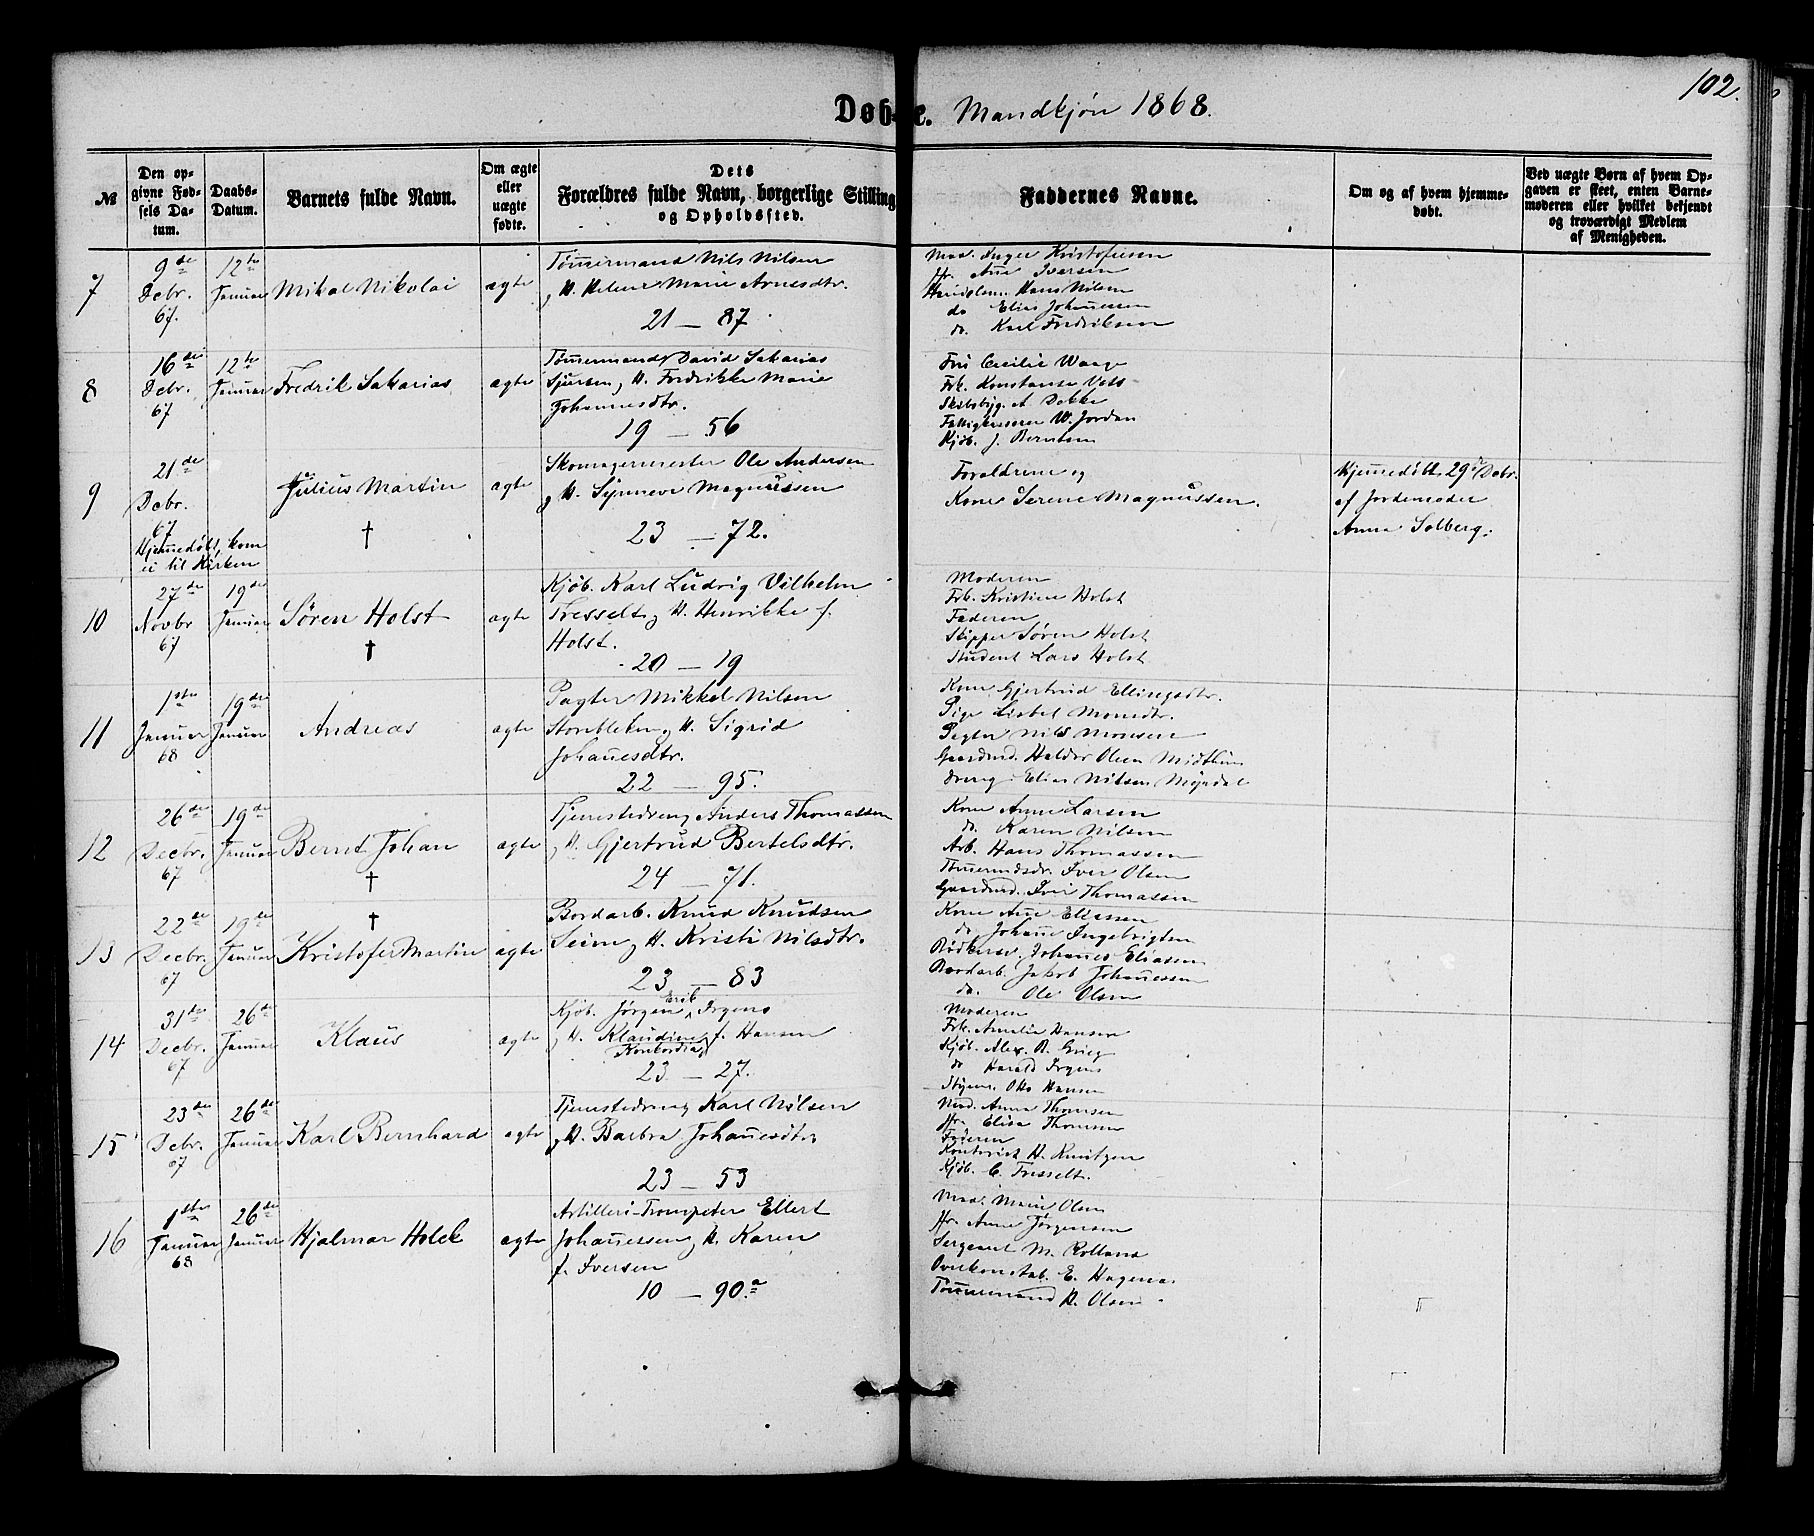 102.
Døbte. Mandkjøn 1868.
№
Den opgivne Fødsels Datum.
Daabs-Datum.
Barnets fulde Navn.
Om ægte eller uægte fødte.
Dets Forældres fulde Navn, borgerlige Stilling og Opholdssted.
Faddernes Navne.
Om og af hvem hjemmedøbt.
Ved uægte Børn af hvem Opgaven er skeet, enten Barnemoderen eller hvilket bekjendt og troværdigt Medlem af Menigheden.
7
9de Debr. 67.
12te Januar
Mikal Nikolai
ægte
Tømmermand Nils Nilsen
og H. Helene Marie Arnesdtr.
21 — 87
Mad. Inger Kristofersen
Fr. Ane Iversen
Handelsm. Hans Nilsen
do Elias Johanessen
do. Karl Fredriksen
8
16de Debr. 67
12te Januar
Fredrik Sakarias
ægte
Tømmermand David Sakarias
Sjursen og H. Fredrikke Marie
Johannesdtr.
19 — 56
Fru Cecilie Waage
Frk. Konstanse Vets
Skibsbyg. A Dekke
W. Jordan
Kjøb. J. Berntsen
9
21de Debr. 67
Hjemmedøbt, kom
ei til Kirken
Julius Martin
†
ægte
Skomagermester Ole Andersen
og H. Synneve Magnussen
23 — 72.
Forældrene og
Kone Serene Magnussen.
Hjemmedøbt 29de Debr.
af Jordemoder
Anna Solberg.
10
27de Novbr 67
19de Januar
Søren Holst
†
ægte
Kjøb. Karl Ludvig Vilhelm
Tresselt og H. Henrikke f.
Holst.
20 — 19
Moderen
Frk. Kristine Holst
Faderen
Skipper Søren Holst
Student Lars Holst
11
1ste Januar 68
19de Januar
Andreas
ægte
Pagter Mikkel Nilsen
Storebleken og H. Sigrid
Johanesdtr.
22 — 95.
Kone Gjertrud Ellingsdtr.
Pige Lisbet Monsdtr.
Pagter Nils Monsen
Gaardmd. Haldor Olsen Midthun
Dreng Elias Nilsen Myrdal
12
26de Decbr. 67
19de Januar
Bernt Johan
†
ægte
Tjenestedreng Anders Thomassen
og H. Gjertrud Bertelsdtr.
24 — 71.
Kone Anne Larsen
do. Karen Nilsen
Arb. Hans Thomassen
Tømermdsdr. Iver Olsen
Gaardmd. Iver Thomassen
13
22de Decbr. 67
19de Januar
†
Kristofer Martin
ægte
Bordarb. Knud Knudsen
Seim og H. Kristi Nilsdtr.
23 — 83
Kone Ane Eliassen
do. Johane Ingebrigtsen
Bødkersv. Johanes Eliassen
Bordarb. Jakob Johanessen
do. Ole Olsen
14
31de Decbr. 67
26de Januar
Klaus
ægte
Kjøb. Jørgen Erib Irgens
og H. Klaudine Konkordia f. Hansen
23 — 27.
Moderen
Frk. Amalie Hansen
Kjøb. Alex. B. Grieg
do Harald Irgens
Styrm. Otto Hansen
15
23de Debr. 67
26de Januar
Karl Bernhard
ægte
Tjenestedreng Karl Nilsen
og H. Barbra Johanesdtr.
23 — 53
Mad. Anna Thomsen
Fr. Elisa Thomsen
Faderen
Kontorist H. Knutzen
Kjøb. C. Tresselt.
16
1ste Januar 68
26de Januar
Hjalmar Holck
ægte
Artilleri-Trompeter Ellert
Johanessen og H. Karen
f. Iversen
10 — 90.a
Mad. Marie Olsen
Fr. Anne Jørgensen
Sergeant M. Rolland
Overkonstab. E. Hagenes
Tømmermand H. Olsen